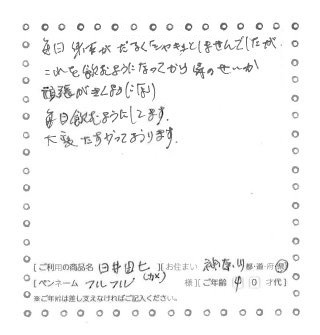 毎日 身体が だるくシャキッとしませんでしたが、
これを飲むようになってから 気のせいか
頑張がきく様になり
毎日飲むようにしてます。
大変 たすかっております。
[ご利用の商品名 田七] [お住まい 神奈川 都・道・府・県]
[ペンネーム フルフル 様] [ご年齢 40才代]
※ご年齢は差し支えなければご記入ください。